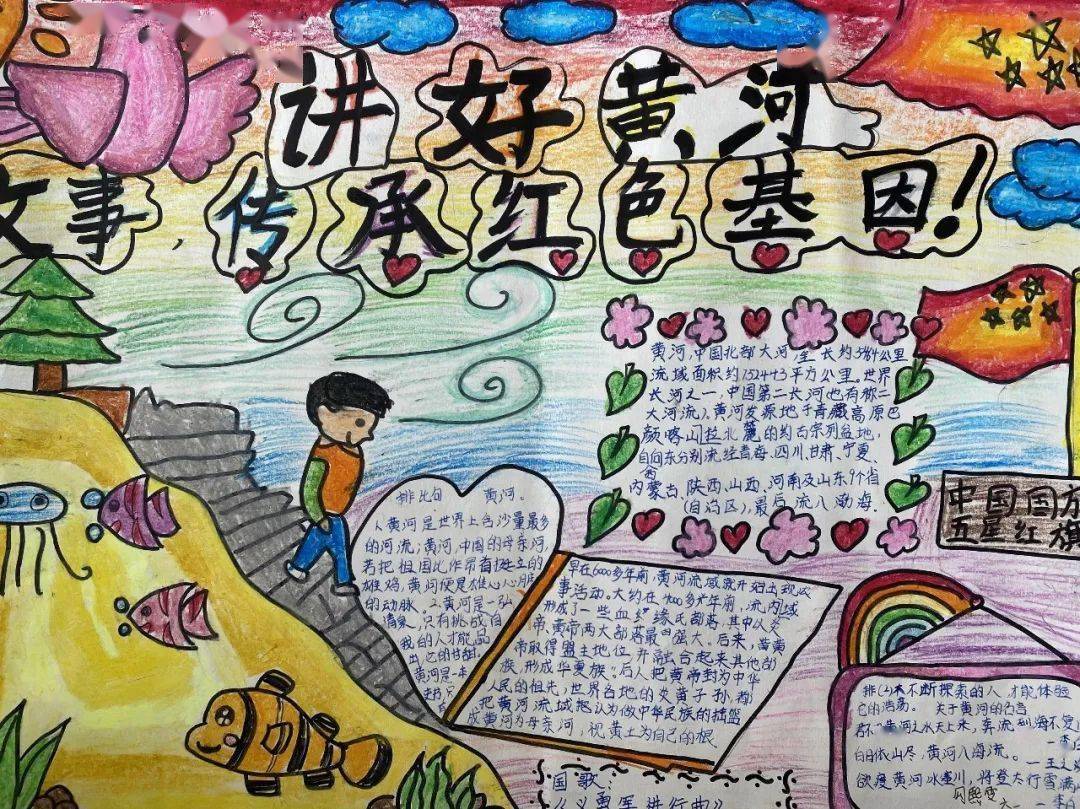 讲好黄河
故事,传承红色基因!
黄河,中国北部大河,全长约5464公里
流域面积约752443平方公里。世界
长河之一,中国第二长河也有称二
大河流)。黄河发源地于青藏高原巴
颜喀山拉北麓的约古宗列盆地,
自向东分别流经青海、四川、甘肃、宁夏、
内蒙古、陕西、山西、河南及山东9个省
(自治区),最后流入渤海.
中国国
五星红旗
排比句 黄河。
1、黄河是世界上含沙量最多
的河流;黄河,中国的母亲河,
若把祖国比作昂首挺立的
雄鸡,黄河便是雄心人
的动脉。2.黄河是一
只有挑战自
我的人才能品
出它的甘甜.
黄河是一本
早在6000多年前,黄河流域就开始出现
事活动。大约在4000多年前,流内域
形成了一些血缘氏部落,其中以炎
帝、黄帝两大部落最强大。后来,黄帝
取得盟主地位,并融合起来其他部
族,形成华夏族。后人把黄帝封为中华
人民的祖先,世界各地的炎黄子孙,都
把黄河流域认为做中华民族的摇篮
成黄河为母亲河,视黄土为自己的根.
不断探索的人才能体验
它的 关于黄河的名言
君不 黄河之水天上来,奔流到海不复
白日依山尽,黄河入海流。
欲渡黄河冰塞川,将登太行雪满
国歌:
《义勇军进行曲》